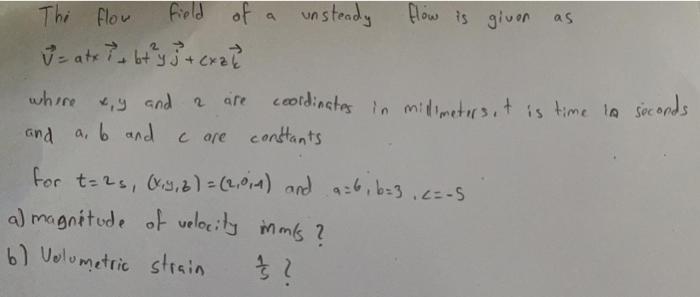 Thi flow field of a unsteady flow is given as
V⃗ = atx i⃗ + bt²y j⃗ + cxz k⃗
where x,y and z are coordinates in millimeters, t is time in seconds
and a, b and c are constants
for t=2s, (x,y,z) = (2,0,1) and a=6, b=3, c=-5
a) magnitude of velocity mm/s ?
b) Volumetric strain 1/s ?